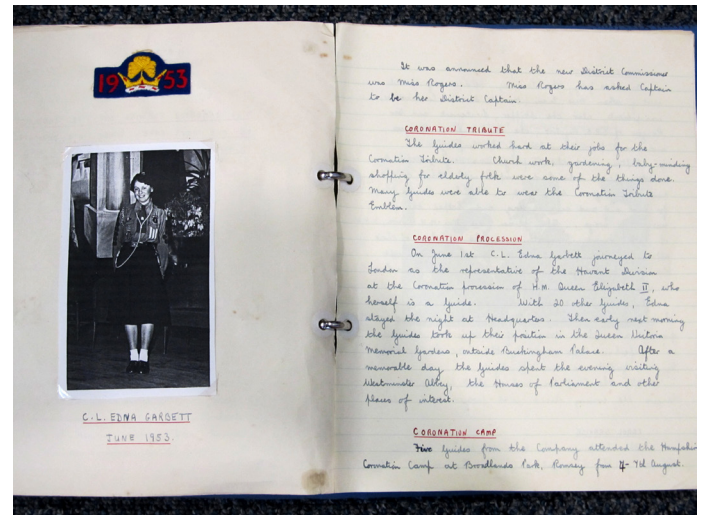 1953
C.L. EDNA GARBETT
JUNE 1953.
It was announced that the new District Commissioner
was Miss Rogers. Miss Rogers has asked Captain
to be her District Captain.
CORONATION TRIBUTE
The Guides worked hard at their jobs for the
Coronation Tribute. Church work, gardening, baby-minding
shopping for elderly folk were some of the things done.
Many Guides were able to wear the Coronation Tribute
Emblem.
CORONATION PROCESSION
On June 1st C.L. Edna Garbett journeyed to
London as the representative of the Havant Division
at the Coronation procession of H.M. Queen Elizabeth II, who
herself is a Guide. With 20 other Guides, Edna
stayed the night at Headquarters. Then early next morning
the Guides took up their position in the Queen Victoria
Memorial Gardens, outside Buckingham Palace. After a
memorable day the Guides spent the evening visiting
Westminster Abbey, the Houses of Parliament and other
places of interest.
CORONATION CAMP
Five Guides from the Company attended the Hampshire
Coronation Camp at Broadlands Park, Romsey from August.